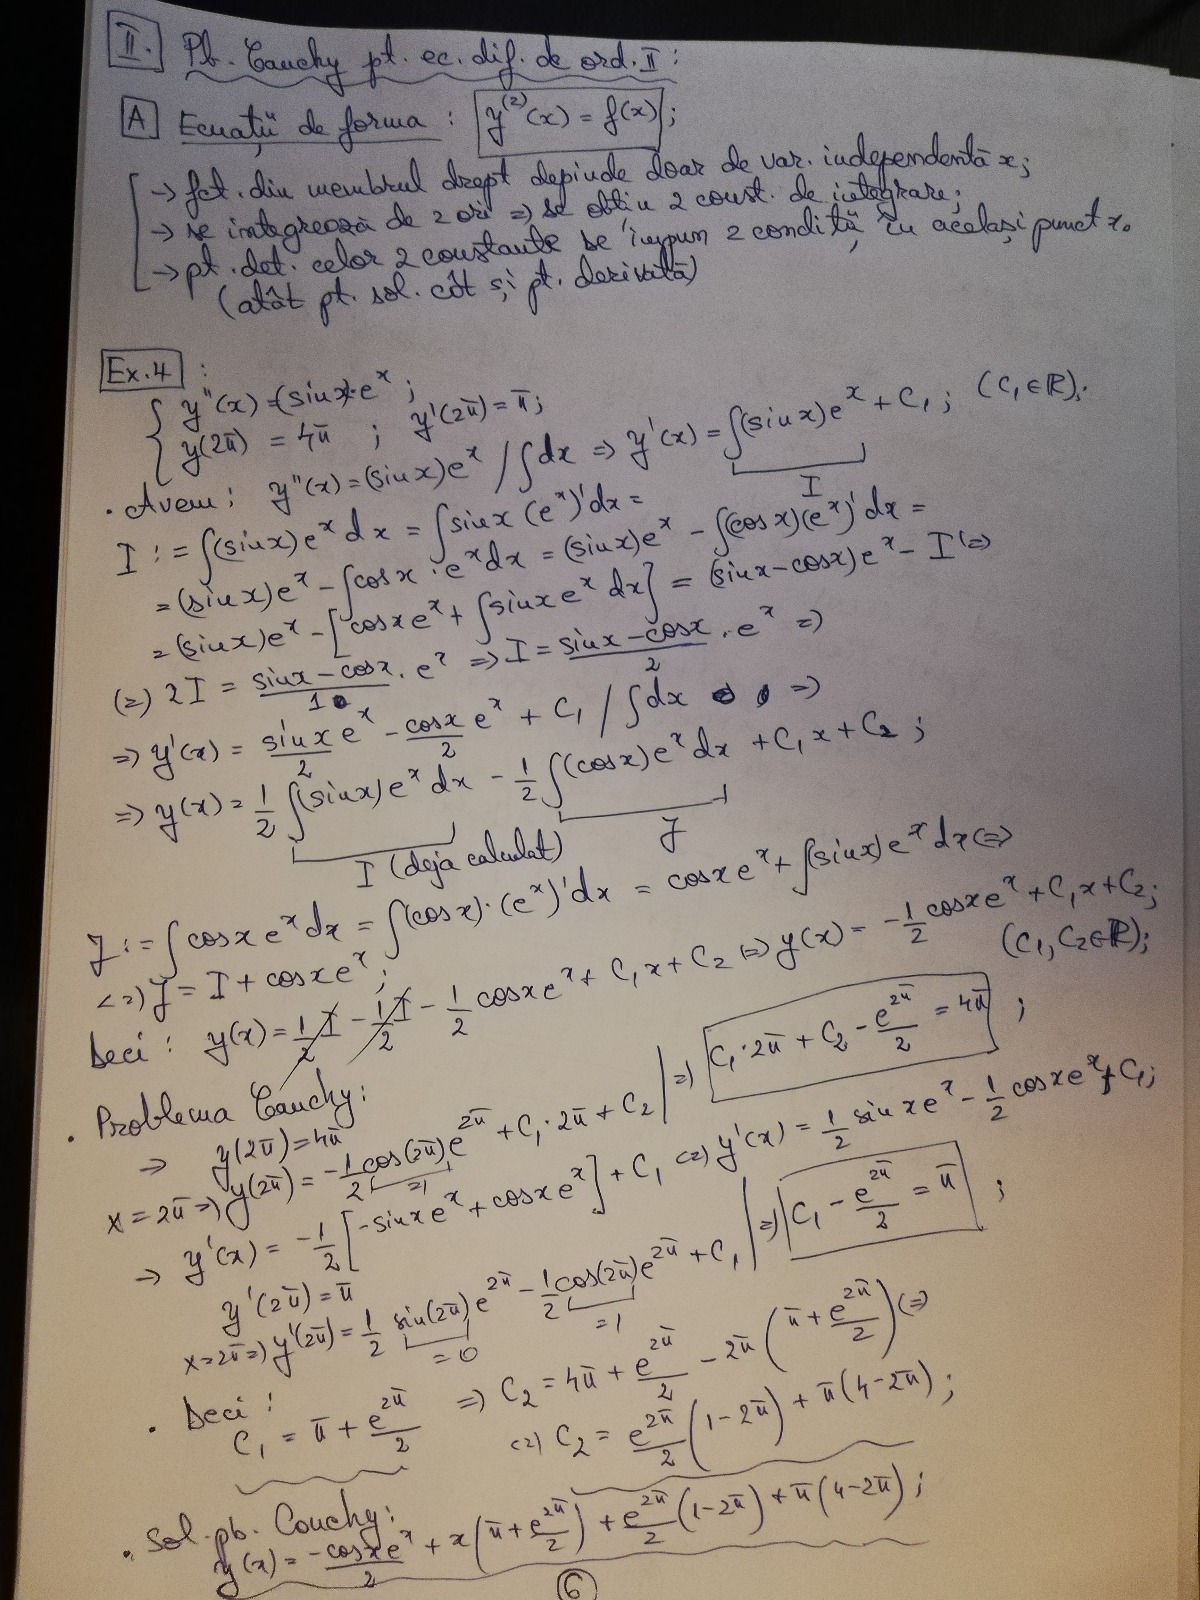 II. Pb. Cauchy pt. ec. dif. de ord. II:
A Ecuații de forma: y^(2)(x) = f(x);
→ fct. din membrul drept depinde doar de var. independentă x;
→ se integrează de 2 ori ⇒ se obțin 2 const. de integrare;
→ pt. det. celor 2 constante se impun 2 condiții în același punct x₀
(atât pt. sol. cât și pt. derivată)
Ex.4:
{ y''(x) = (sin x)·e^x;
y(2π) = 4π ; y'(2π) = π;
• Avem: y''(x) = (sin x)e^x / ∫dx ⇒ y'(x) = ∫(sin x)e^x + C₁; (C₁∈ℝ);
I
I := ∫(sin x)e^x dx = ∫sin x (e^x)' dx =
= (sin x)e^x - ∫cos x · e^x dx = (sin x)e^x - ∫(cos x)(e^x)' dx =
= (sin x)e^x - [cos x e^x + ∫sin x e^x dx] = (sin x - cos x)e^x - I ⇔
(=) 2I = (sin x - cos x)/1 · e^x ⇒ I = (sin x - cos x)/2 · e^x ⇒
⇒ y'(x) = sin x/2 e^x - cos x/2 e^x + C₁ / ∫dx ⇒
⇒ y(x) = 1/2 ∫(sin x)e^x dx - 1/2 ∫(cos x)e^x dx + C₁x + C₂;
I (deja calculat) J
J := ∫cos x e^x dx = ∫(cos x)·(e^x)' dx = cos x e^x + ∫(sin x)e^x dx ⇔
<=> J = I + cos x e^x;
Deci: y(x) = 1/2 I - 1/2 I - 1/2 cos x e^x + C₁x + C₂ ⇔ y(x) = -1/2 cos x e^x + C₁x + C₂;
(C₁, C₂∈ℝ);
• Problema Cauchy:
→ y(2π) = 4π
x = 2π ⇒ y(2π) = -1/2 cos(2π) e^2π + C₁·2π + C₂ | ⇒ C₁·2π + C₂ - e^2π/2 = 4π ;
=1
→ y'(x) = -1/2 [-sin x e^x + cos x e^x] + C₁ ⇔ y'(x) = 1/2 sin x e^x - 1/2 cos x e^x + C₁;
y'(2π) = π
x = 2π ⇒ y'(2π) = 1/2 sin(2π) e^2π - 1/2 cos(2π) e^2π + C₁ | ⇒ C₁ - e^2π/2 = π ;
=0 =1
• Deci:
C₁ = π + e^2π/2 ⇒ C₂ = 4π + e^2π/2 - 2π(π + e^2π/2) ⇔
⇔ C₂ = e^2π/2 (1-2π) + π(4-2π);
• Sol. pb. Cauchy:
y(x) = -cos x e^x/2 + x(π + e^2π/2) + e^2π/2 (1-2π) + π(4-2π);
6